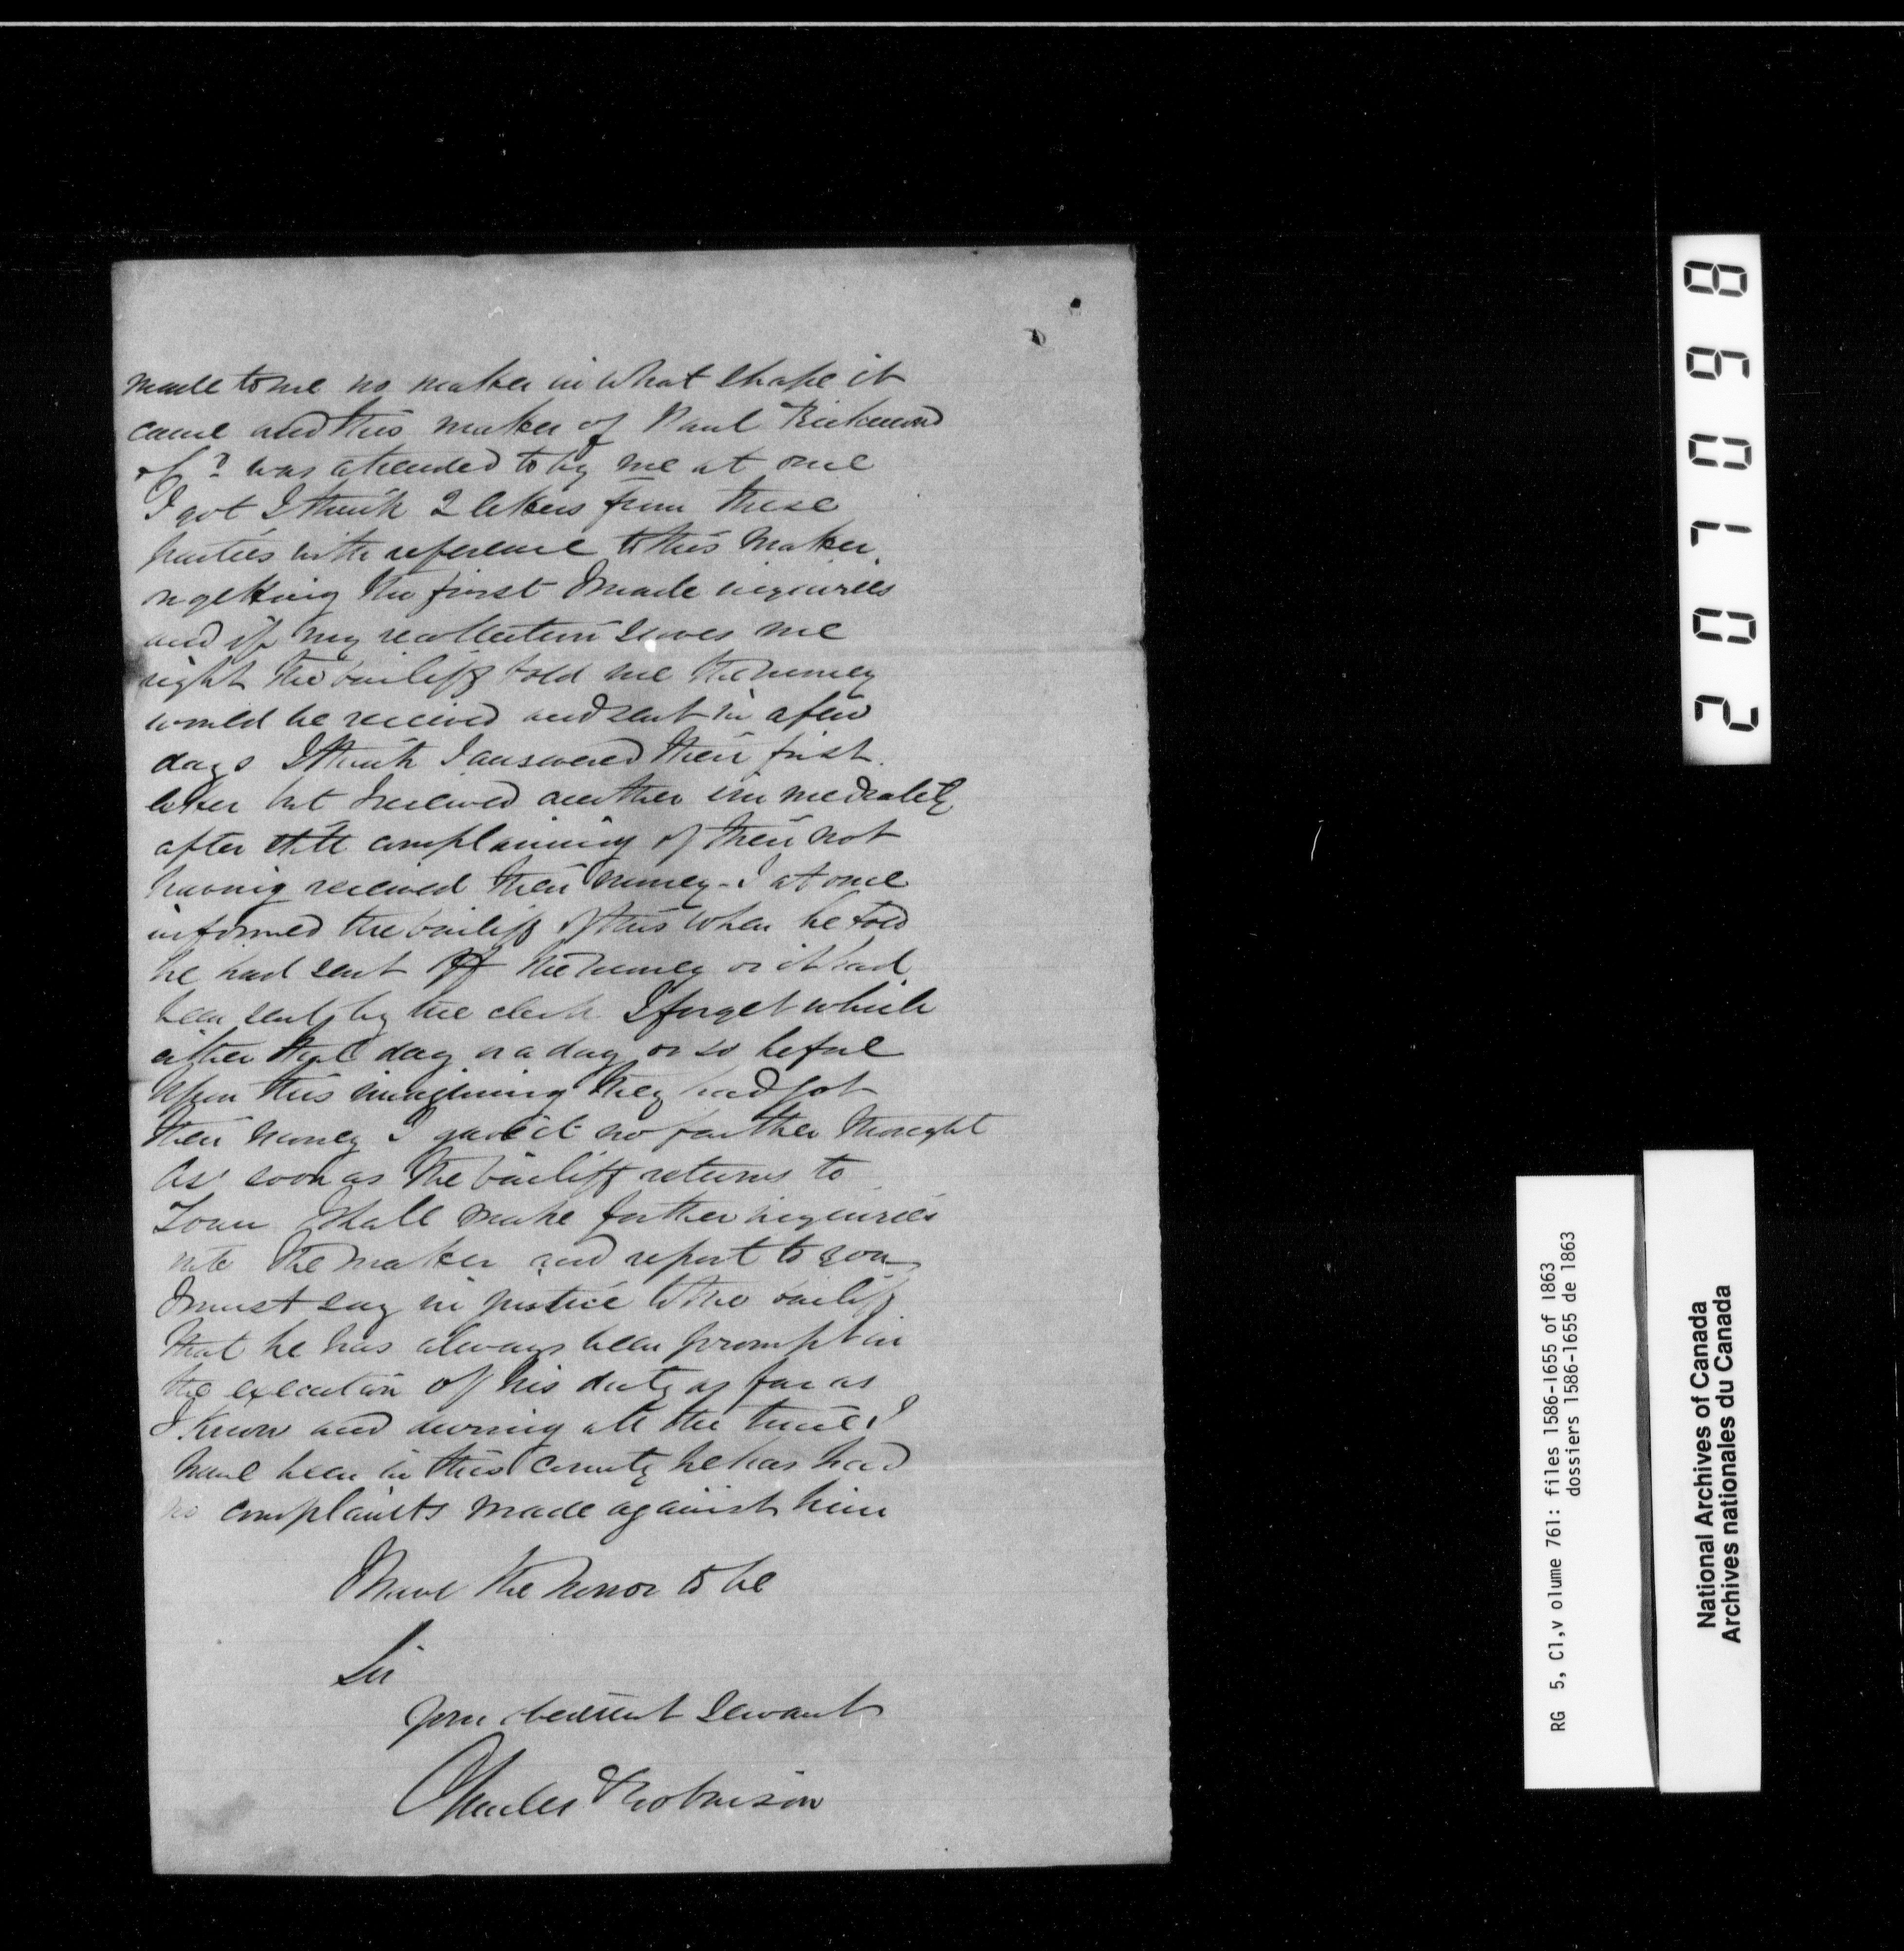 made to me no matter in what shape it
came and this matter of Paul Richmond
was attended to by me at once
I got I think 2 letters from these
parties with reference to this matter.
on getting the first I made inquiries
and if my recollection serves me
right the bailiff told me the money
would be received and sent in a few
days I think I answered their first
letter but I received another immediately
after still complaining of their not
having received their money - I at once
informed the bailiff of this when he told
he had sent off the money or it had
been sent by the clerk I forget which
either that day or a day or so before
Upon this imagining they had got
their money I gave it no further thought
As soon as the bailiff returns to
Town I shall make further inquiries
into the matter and report to you
I must say in justice to the bailiff
that he has always been prompt in
the execution of his duty as far as
I know and during all the time I
have been in this County he has had
no complaints made against him
I have the honor to be
Sir
Your obedient Servant
Charles Robinson
207098
RG 5, C1,v olume 761: files 1586-1655 of 1863
dossiers 1586-1655 de 1863
National Archives of Canada
Archives nationales du Canada